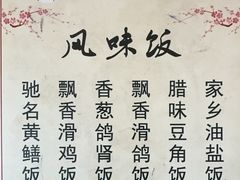 风味饭
家乡油盐饭
腊味豆角饭
飘香滑鸽饭
香葱鸽肾饭
飘香滑鸡饭
驰名黄鳝饭